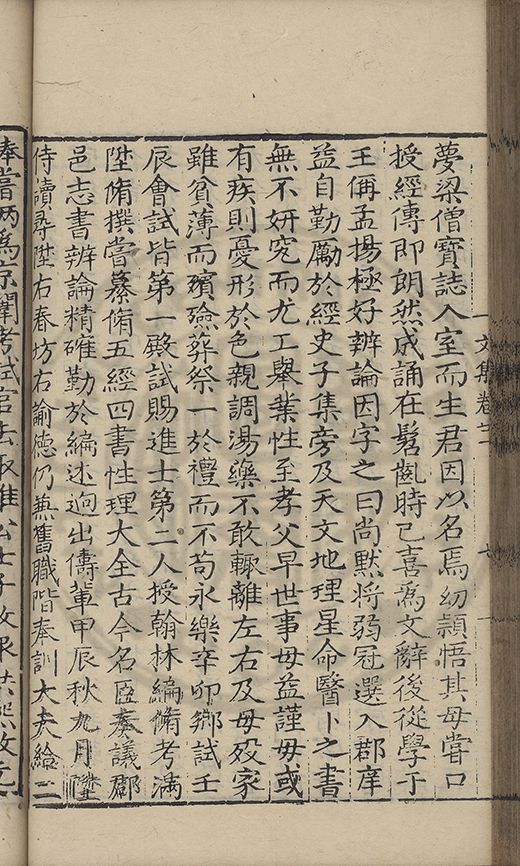 夢梁僧寶誌入室而生君因以名焉幼頴悟其母嘗口
授經傳即朗然成誦在髫齓時已喜為文辭後從學于
王偁孟揚極好辨論因字之曰尚黙將弱冠選入郡庠
益自勤勵於經史子集旁及天文地理星命醫卜之書
無不妍究而尤工舉業性至孝父早世事母益謹母或
有疾則憂形於色親調湯藥不敢輙離左右及母殁家
雖貧薄而殯殮葬祭一於禮而不苟永樂辛卯鄉試壬
辰會試皆第一殿試賜進士第二人授翰林編脩考滿
陞脩撰嘗纂脩五經四書性理大全古今名臣奏議郡
邑志書辨論精確勤於編述逈出儔輩甲辰秋九月陞
侍讀尋陞右春坊右諭德仍兼舊職階奉訓大夫給二
文集卷二
七